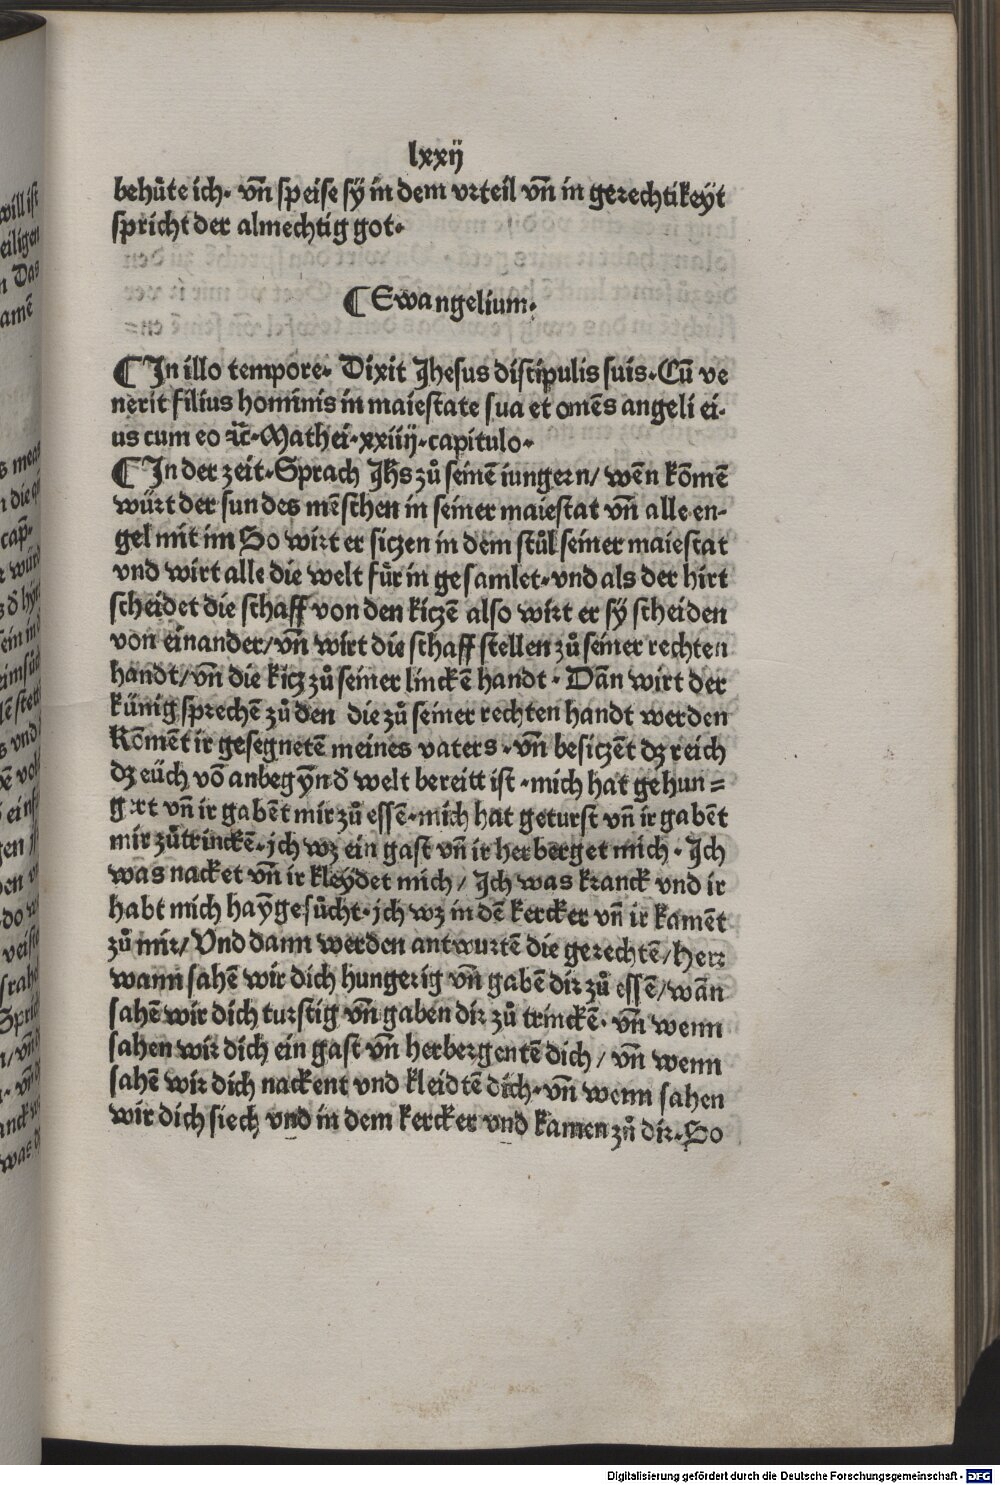 lxxij
behůte ich. vn̄ speise sÿ in dem vrteil vn̄ in gerechtikeyt
spricht der almechtig got.
¶ Ewangelium.
¶ In illo tempore. Dixit Jhesus discipulis suis. Cū ve
nerit filius hominis in maiestate sua et omēs angeli ei-
us cum eo ⁊c̄. Mathei. xxiiij. capitulo.
¶ In der zeit. Sprach Jhs zů seinē iungern/ wēn kōmē
würt der sun des mēschen in seiner maiestat vn̄ alle en-
gel mit im So wirt er siczen in dem stůl seiner maiestat
vnd wirt alle die welt für in gesamlet. vnd als der hirt
scheidet die schaff von den kiczē also wirt er sÿ scheiden
von einander/ vn̄ wirt die schaff stellen zů seiner rechten
handt/ vn̄ die kicz zů seiner linckē handt. Dān wirt der
künig sprechē zů den die zů seiner rechten handt werden
Kōmēt ir gesegnetē meines vaters. vn̄ besiczēt dz reich
dz eüch vō anbegÿn̄ đ welt bereitt ist. mich hat gehun=
gert vn̄ ir gabēt mir zů essē. mich hat geturst vn̄ ir gabēt
mir zů trinckē. ich wz ein gast vn̄ ir herberget mich. Ich
was nacket vn̄ ir kleydet mich/ Ich was kranck vnd ir
habt mich haȳgesůcht. ich wz in dē kercker vn̄ ir kamēt
zů mir/ Vnd dann werden antwurtē die gerechtē/ Herr
wann sahē wir dich hungerig vn̄ gabē dir zů essē/ wān
sahē wir dich turstig vn̄ gaben dir zů trinckē. vn̄ wenn
sahen wir dich ein gast vn̄ herbergentē dich/ vn̄ wenn
sahē wir dich nackent vnd kleidtē dich. vn̄ wenn sahen
wir dich siech vnd in dem kercker vnd kamen zů dir. So
Digitalisierung gefördert durch die Deutsche Forschungsgemeinschaft - DFG